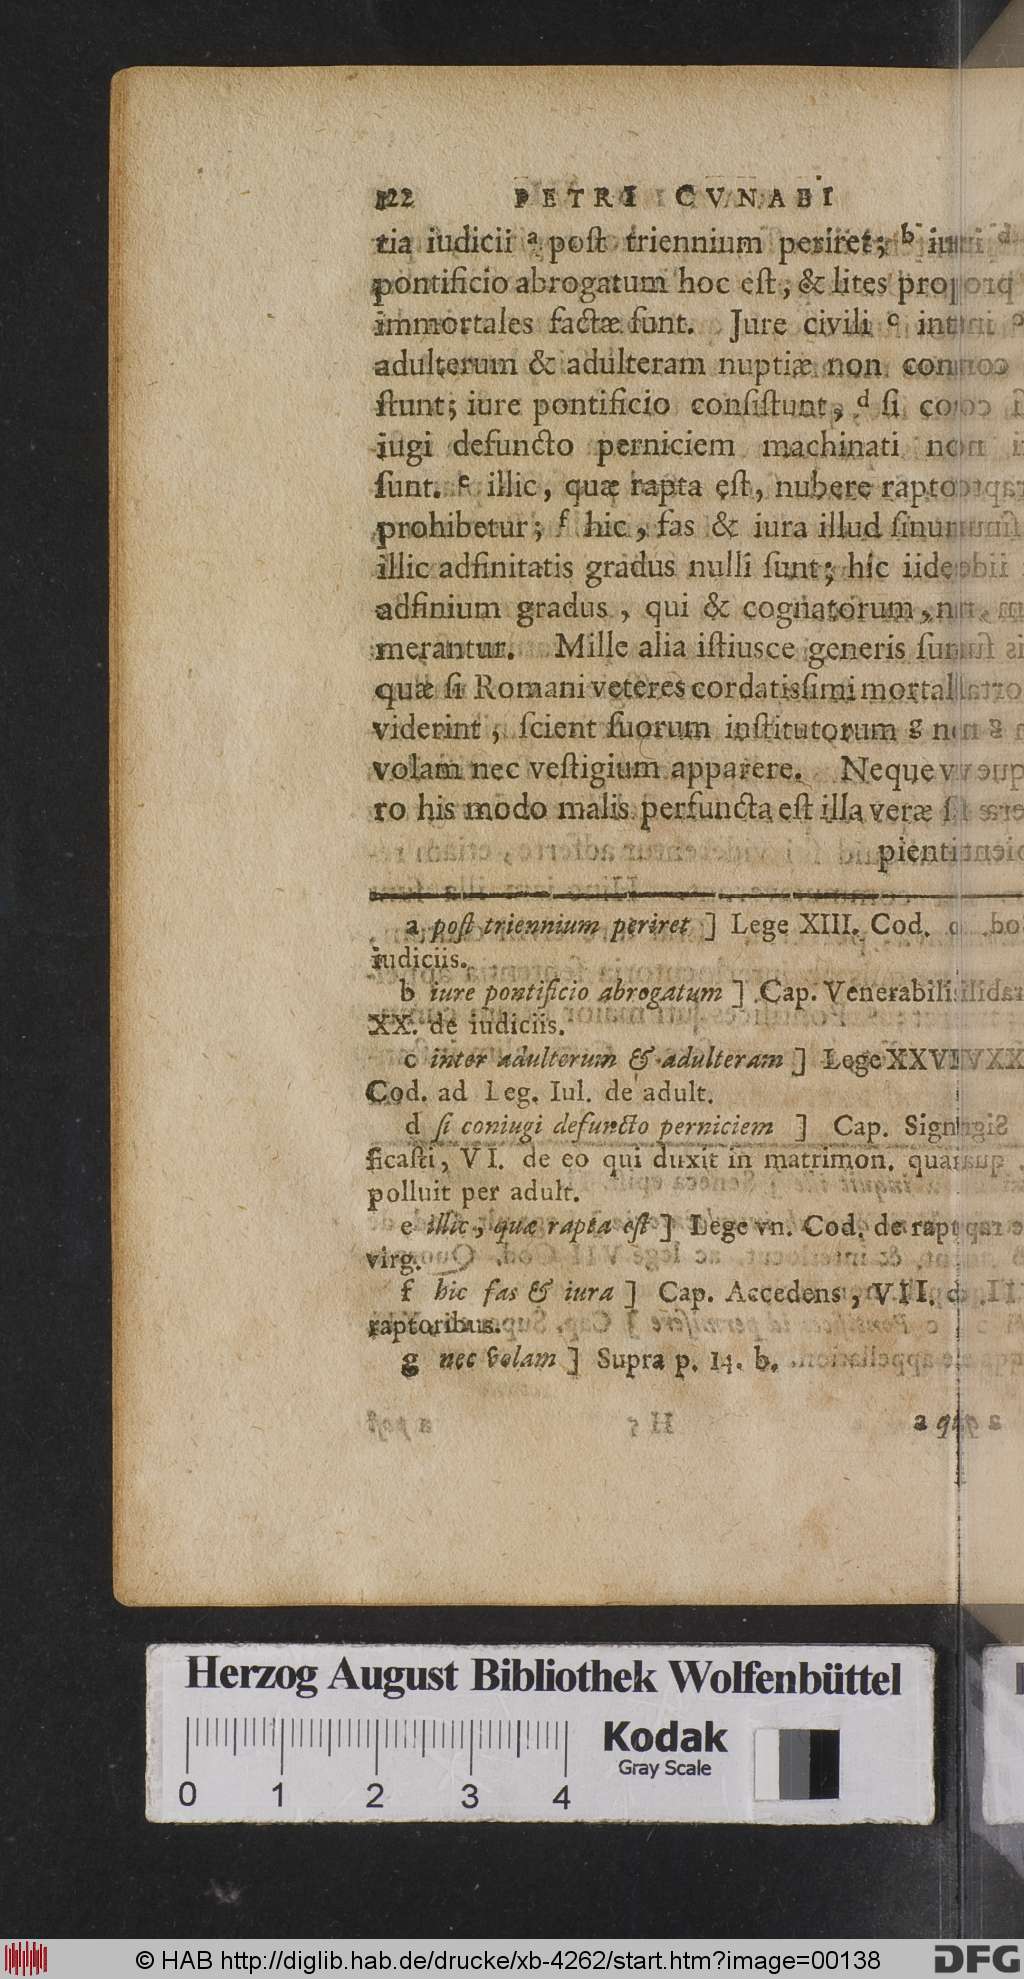 122 PETRI CVNAEI
tia iudicii a post triennium periret; b iuri
pontificio abrogatum hoc est, & lites pro
immortales factæ sunt. Jure civili c int
adulterum & adulteram nuptiæ non con
stunt; iure pontificio consistunt, d si co
iugi defuncto perniciem machinati non
sunt. e illic, quæ rapta est, nubere rapto
prohibetur; f hic, fas & iura illud sinun
illic adfinitatis gradus nulli sunt; hic iide
adfinium gradus, qui & cognatorum, nu
merantur. Mille alia istiusce generis sunt
quæ si Romani veteres cordatissimi mortal
viderint, scient suorum institutorum g nec
volam nec vestigium apparere. Neque v
ro his modo malis perfuncta est illa veræ s
pienti
a post triennium periret ] Lege XIII. Cod. d
iudiciis.
b iure pontificio abrogatum ] Cap. Venerabilis
XX. de iudiciis.
c inter adulterum & adulteram ] Lege XXVI
Cod. ad Leg. Iul. de adult.
d si coniugi defuncto perniciem ] Cap. Signi
ficasti, VI. de eo qui duxit in matrimon. quam
polluit per adult.
e illic, quæ rapta est ] Lege vn. Cod. de rapt
virg.
f hic fas & iura ] Cap. Accedens, VII. d
raptoribus.
g nec volam ] Supra p. 14. b.
Herzog August Bibliothek Wolfenbüttel
Kodak
Gray Scale
0 1 2 3 4
© HAB http://diglib.hab.de/drucke/xb-4262/start.htm?image=00138
DFG